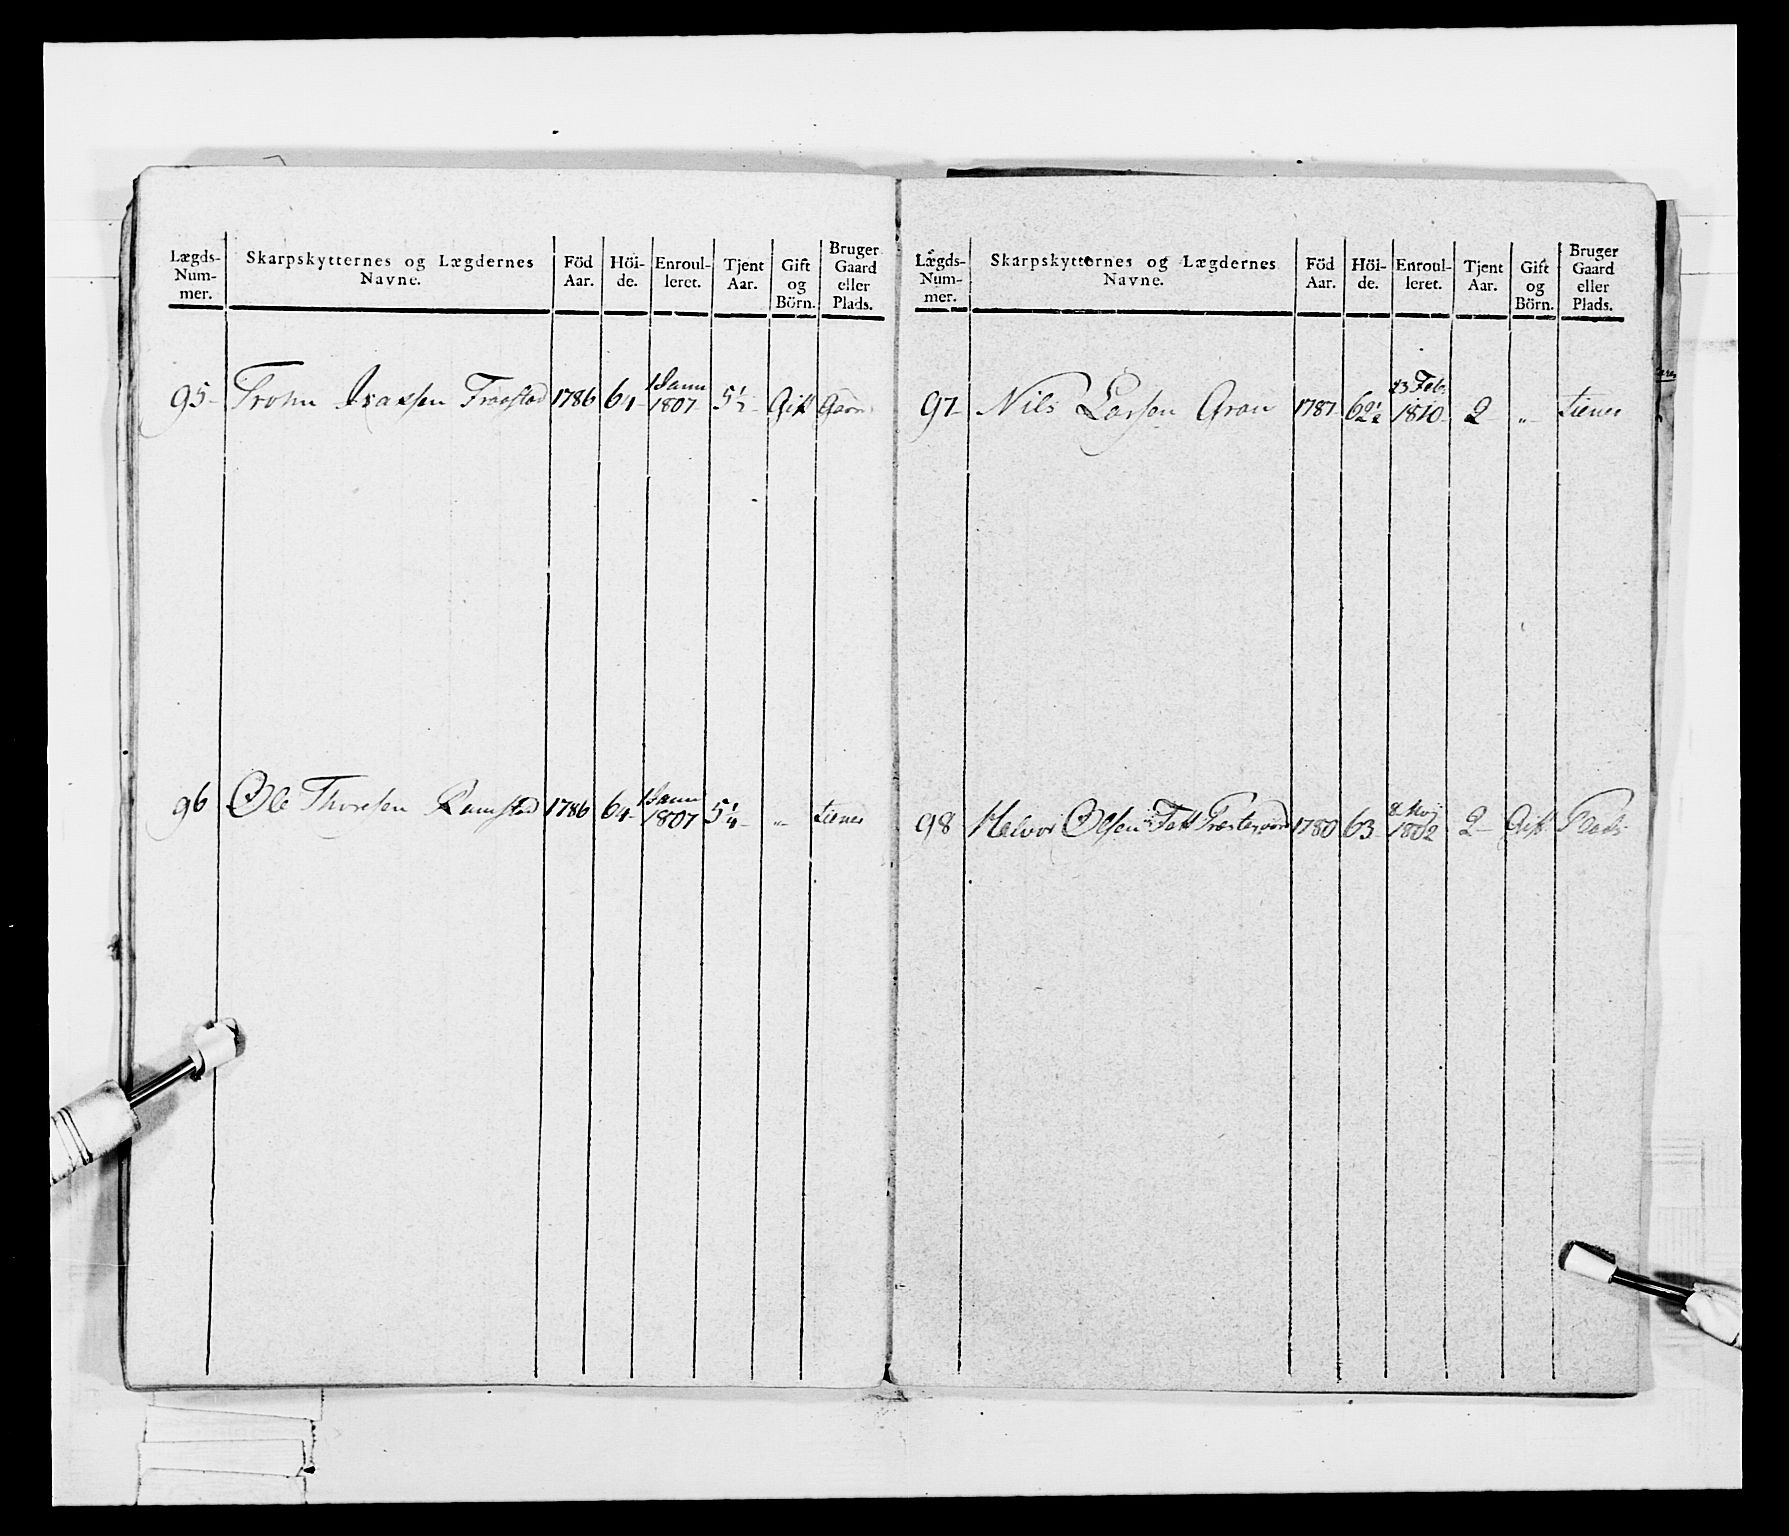 Lægds-Num-mer. Skarpskytternes og Lægdernes Navne. Föd Aar. Höi-de. Enroul-leret. Tjent Aar. Gift og Börn. Bruger Gaard eller Plads.
95- 1786 61- 1 Janu 1807- Gift
96 Ole Thoresen Ramstad 1786 64- 1 Janu 1807 5 1/4- „- tiener
Lægds-Num-mer. Skarpskytternes og Lægdernes Navne. Föd Aar. Höi-de. Enroul-leret. Tjent Aar. Gift og Börn. Bruger Gaard eller Plads.
97- Nils Larsen Gran 1787 62 1/2 23 Feb. 1810- 2 „- tiener
98 Helvor Olsen 1780 63- 1802 2- Gift Plads